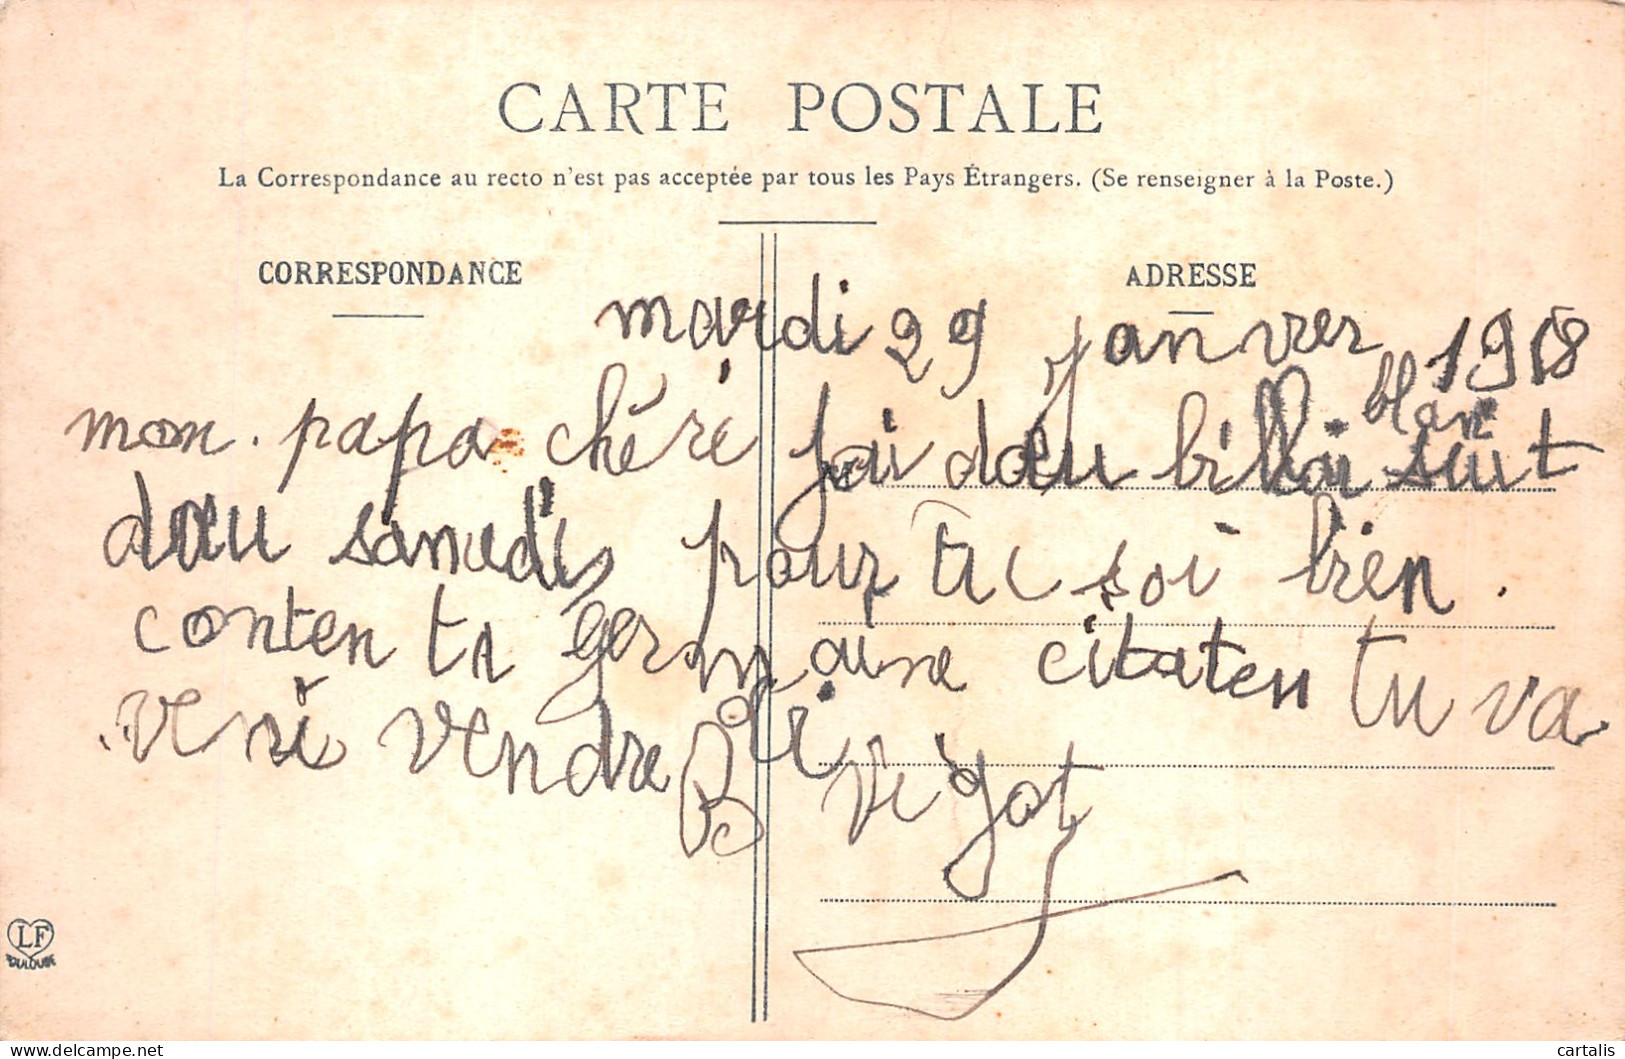 CARTE POSTALE
La Correspondance au recto n'est pas acceptée par tous les Pays Étrangers. (Se renseigner à la Poste.)
CORRESPONDANCE
ADRESSE
mardi 29 janvrer 1918
mon. papa chéri jai dou bill blan suit
dou samedi, pour tu soi bien.
conten ta germaine citaten tu va
veni vendredi
B vigot
LF
TOULOUSE
cartalis